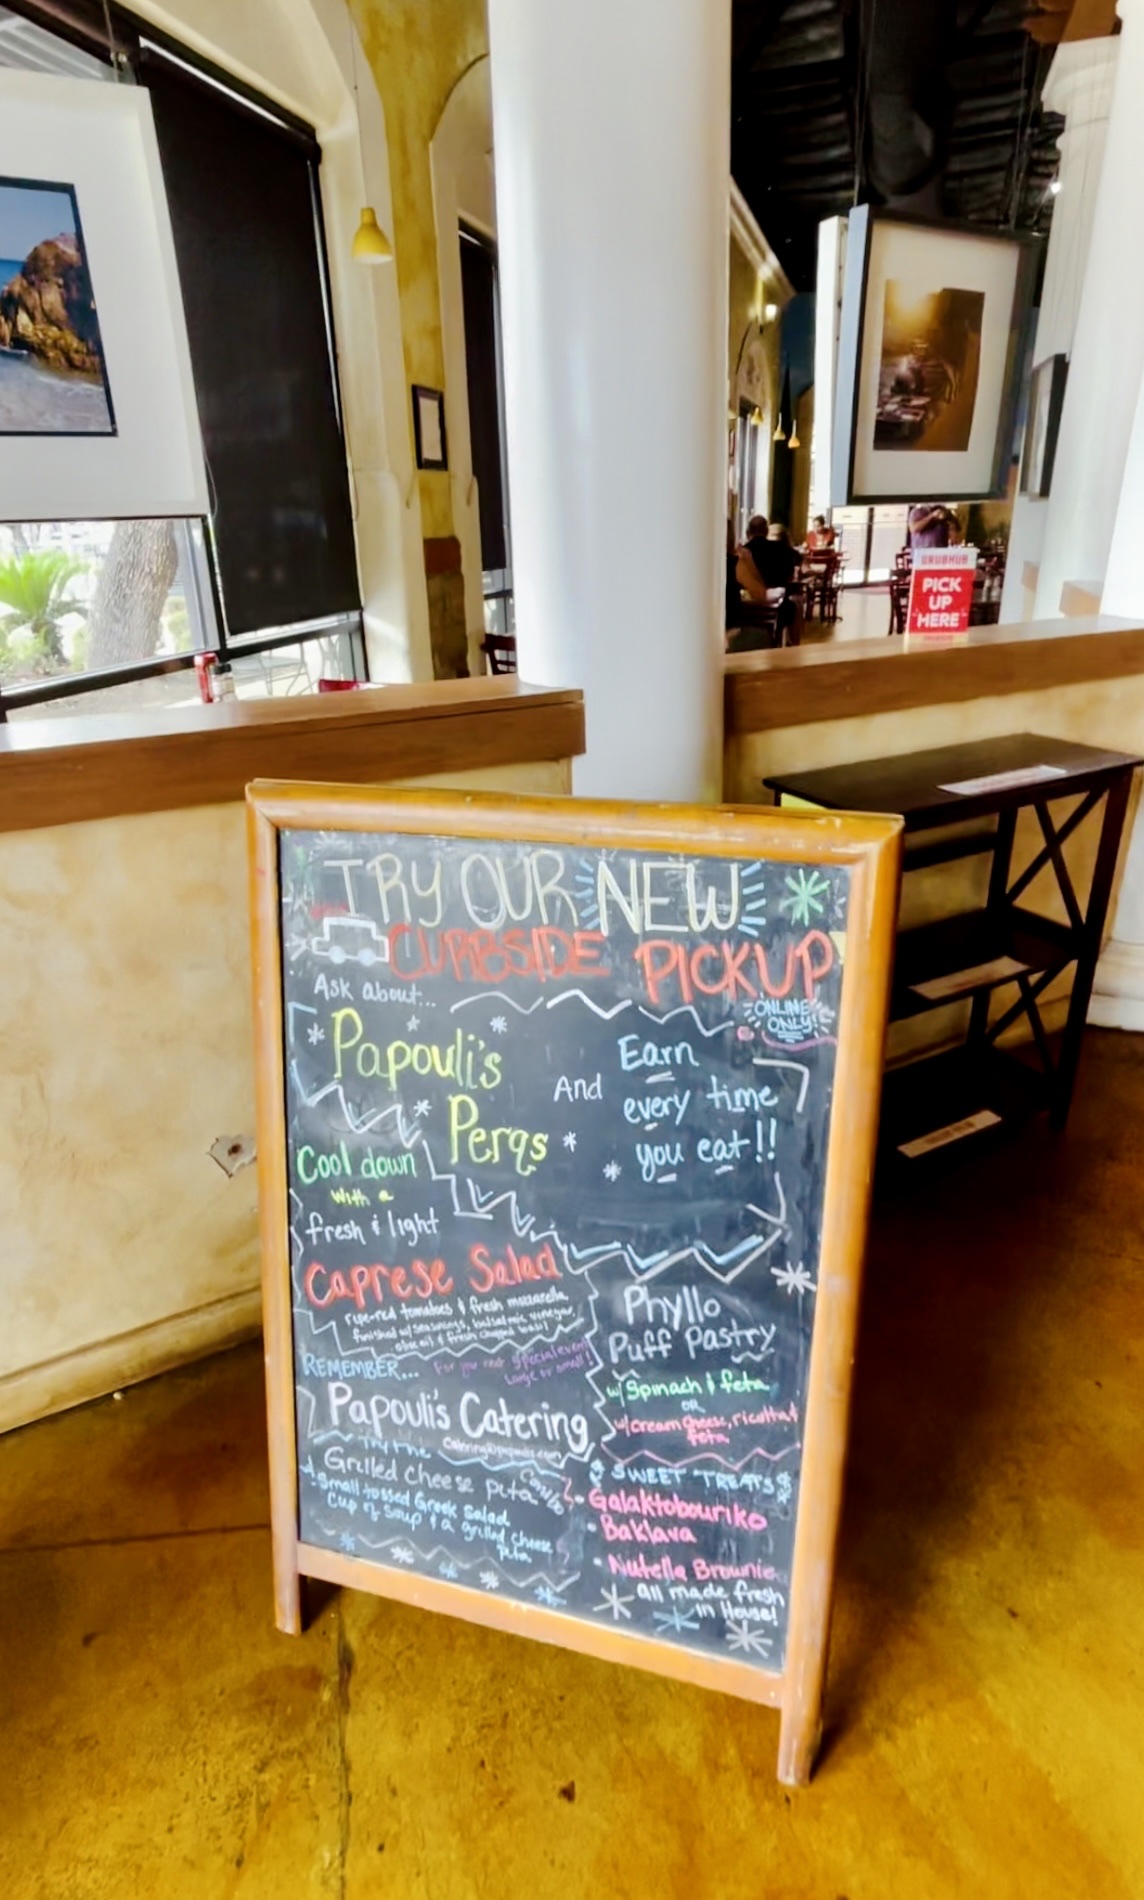 GRUBHUB
PICK
UP
HERE
TRY OUR NEW
CURBSIDE PICKUP
ONLINE
ONLY!
Ask about...
Papouli's
Perqs
And
Earn
every time
you eat!!
Cool down
with a
fresh & light
Caprese Salad
ripe-red tomatoes & fresh mozzarella
finished w/seasonings, balsamic vinegar,
olive oil & fresh chopped basil
REMEMBER...
For your next special event
Large or small!
Papouli's Catering
Try the
Grilled Cheese pita
Combo
Small tossed Greek Salad
Cup of Soup & a grilled cheese
pita
Phyllo
Puff Pastry
w/ Spinach & feta
OR
w/ cream cheese, ricotta &
feta
SWEET TREATS
Galaktobouriko
Baklava
Nutella Brownie
all made fresh
in House!